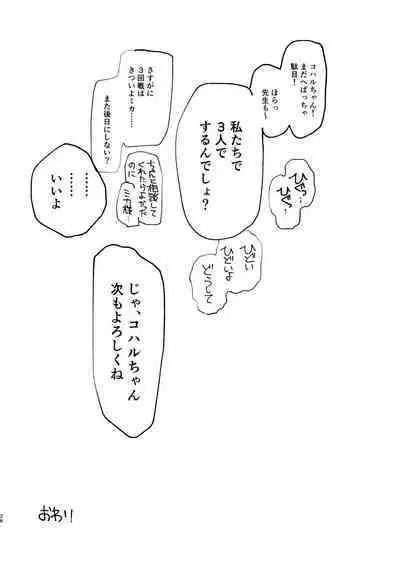 コハルちゃん！
まだへばっちゃ
駄目！
ほらっ
先生も～
ひぐっ…
ひぐっ！
私たちで
３人で
するんでしょ？
ひどい
ひどいよ
どうして
さすがに
３回戦は
きついよミカ……
また後日にしない？
相談して
くれたらよかった
のに
ミカ様…
………
………
いいよ
じゃ、コハルちゃん
次もよろしくね
おわり